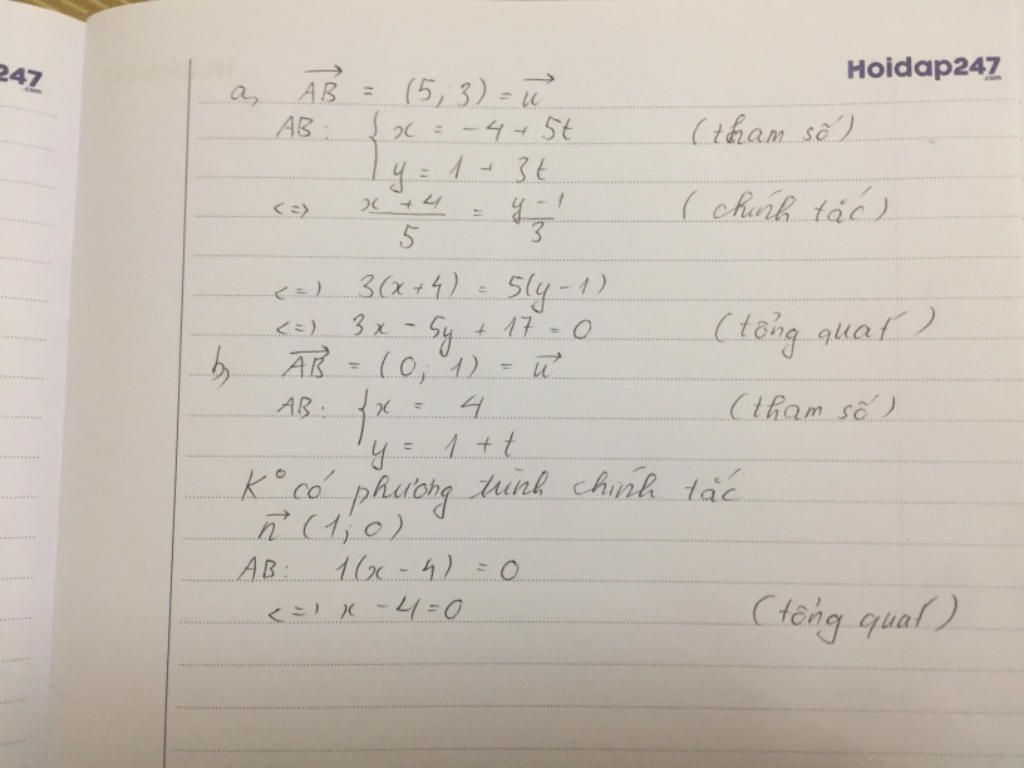 247
.com
Hoidap247
.com
a, AB→ = (5; 3) = u→
AB: { x = -4 + 5t (tham số)
y = 1 + 3t
<=> x + 4 / 5 = y - 1 / 3 (chính tắc)
<=> 3(x+4) = 5(y-1)
<=> 3x - 5y + 17 = 0 (tổng quát)
b, AB→ = (0; 1) = u→
AB: { x = 4 (tham số)
y = 1 + t
K° có phương trình chính tắc
n→ (1; 0)
AB: 1(x - 4) = 0
<=> x - 4 = 0 (tổng quát)